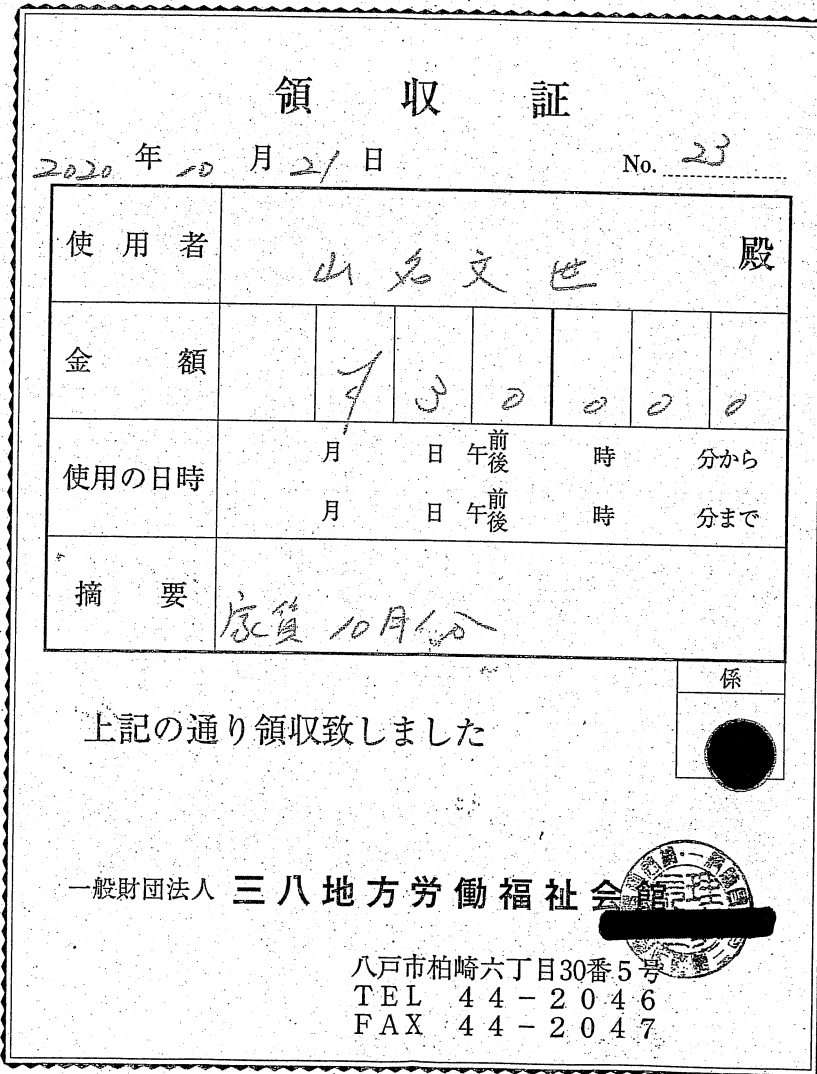 領収証
2020年10月21日 No. 23
使用者 山名文世 殿
金額 ¥30000
使用の日時 月 日 午前後 時 分から
月 日 午前後 時 分まで
摘要 家賃 10月分
係
上記の通り領収致しました
一般財団法人 三八地方労働福祉会館
八戸市柏崎六丁目30番5号
TEL 44-2046
FAX 44-2047